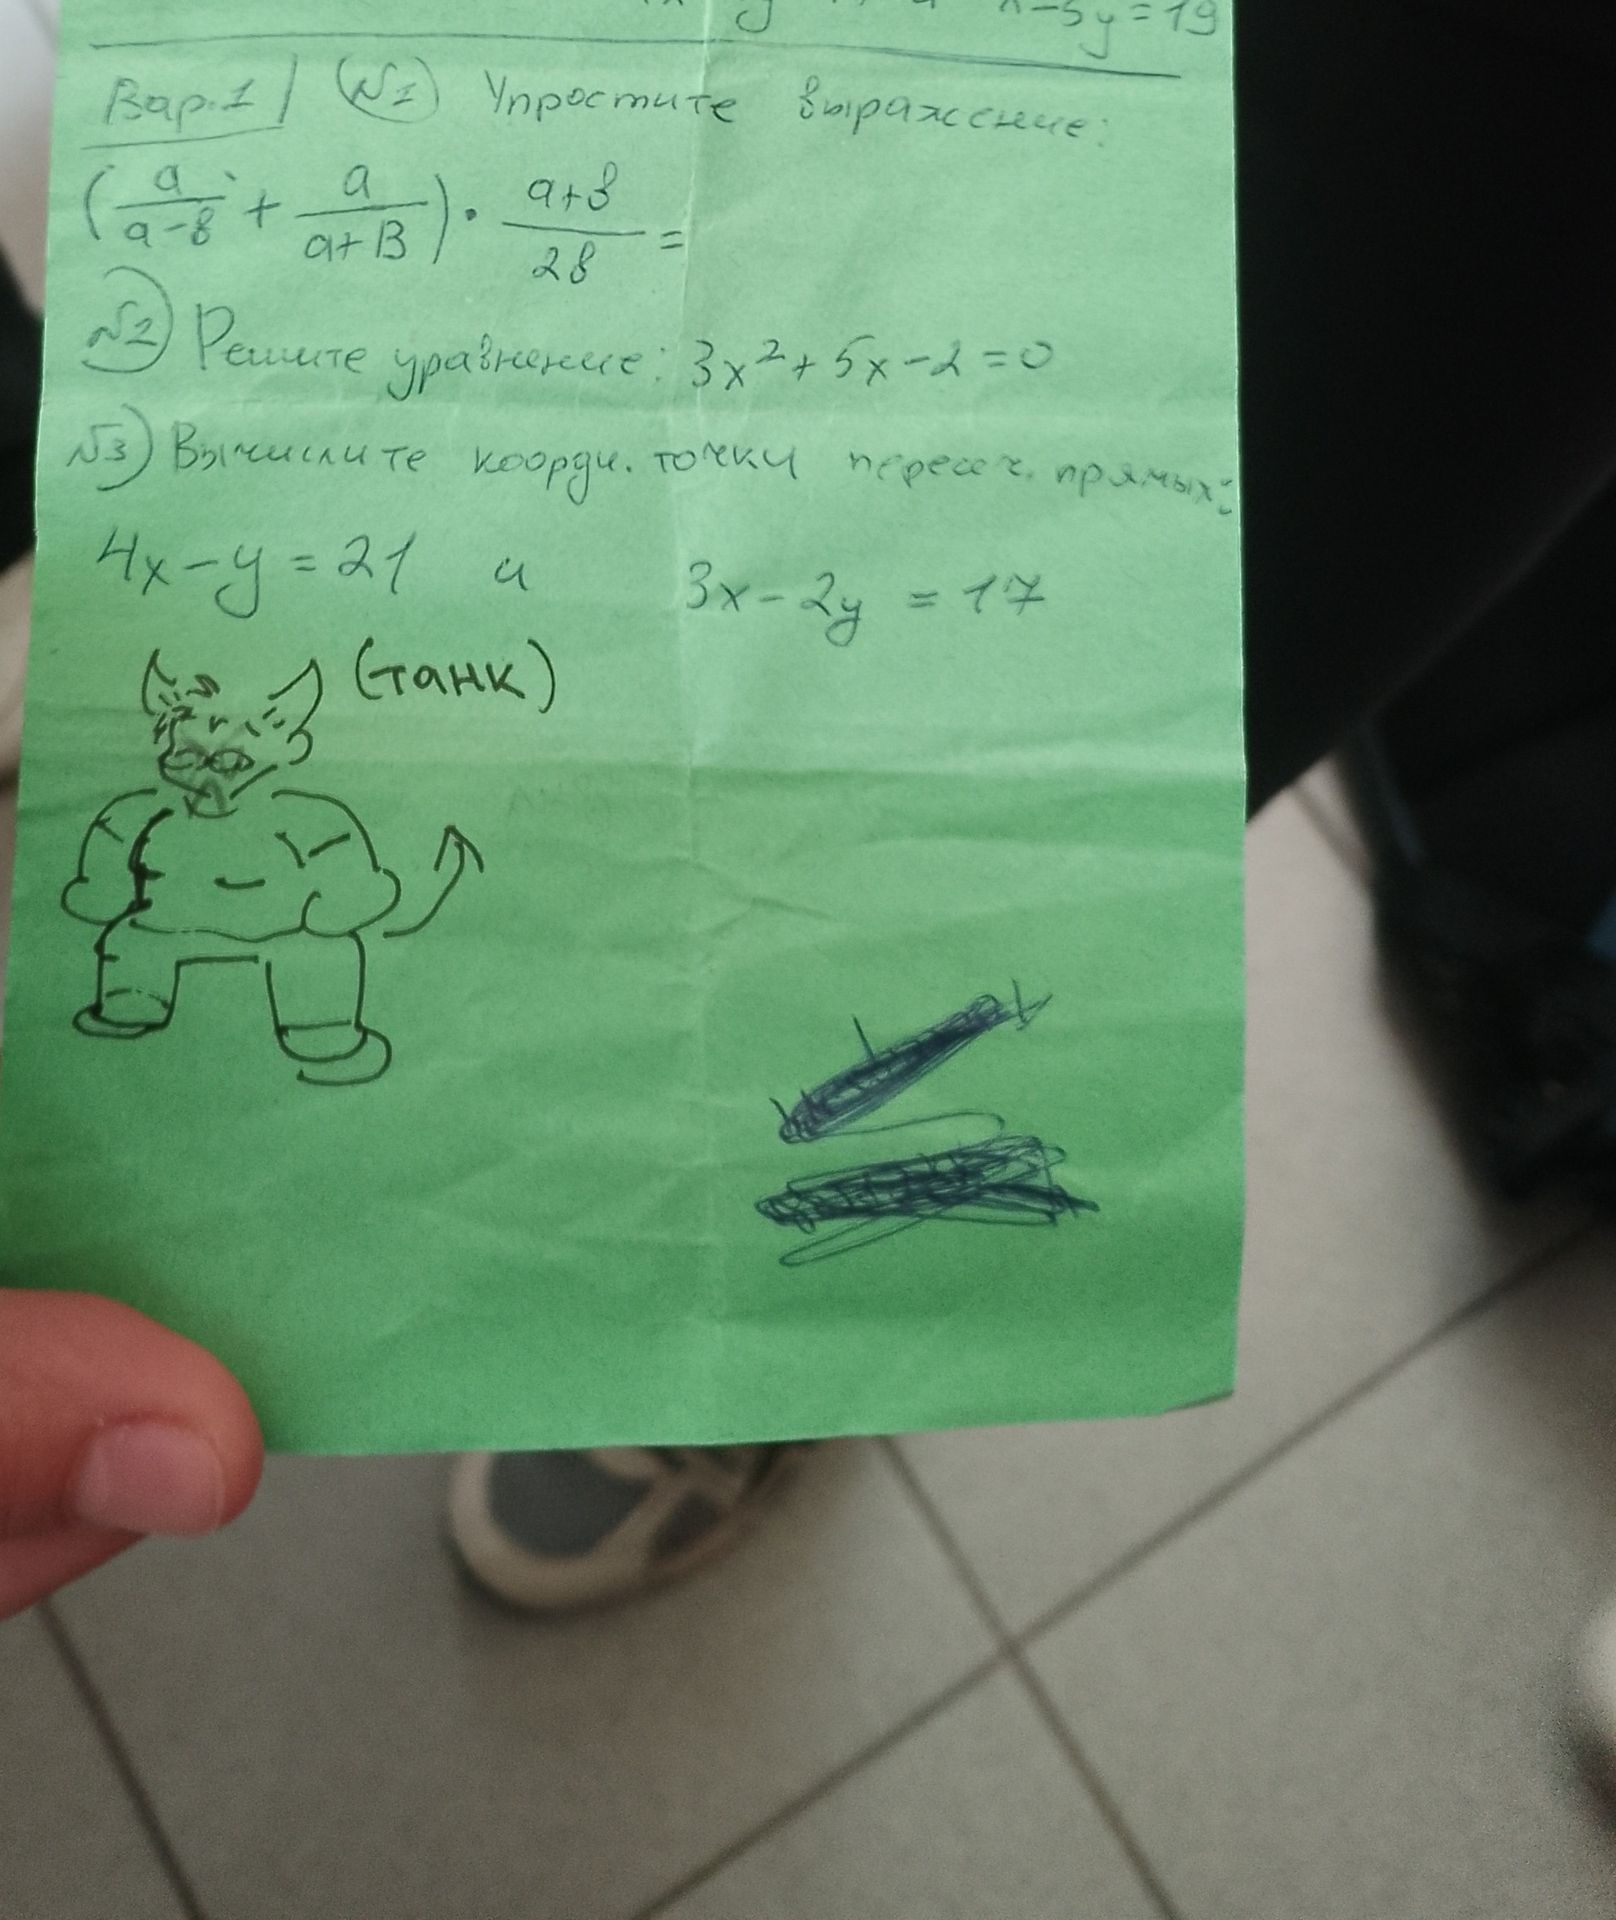 x-5y=19
Вар.1 | №1) Упростите выражение:
(a/(a-в) + a/(a+B)) · (a+в)/2в =
№2) Решите уравнение: 3x²+5x-2=0
№3) Вычислите коорди. точки пересеч. прямых:
4x-y=21 и 3x-2y=17
(танк)